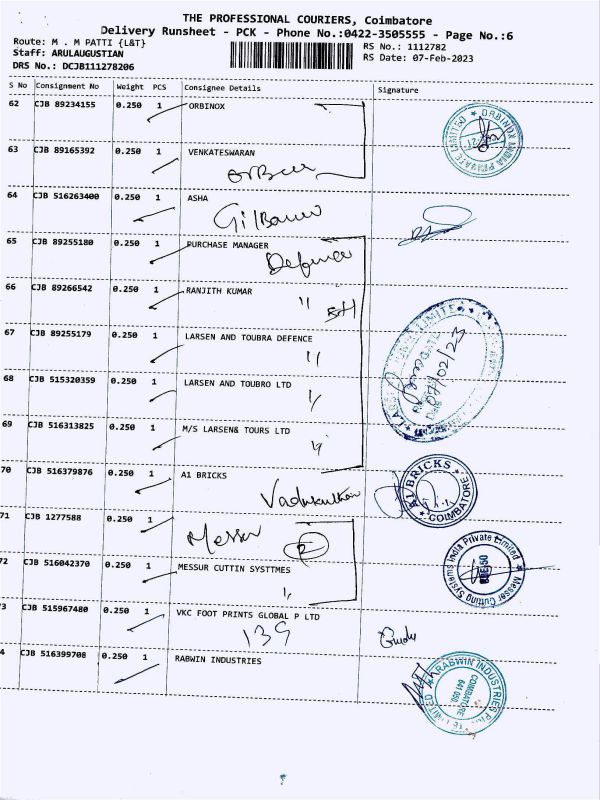 THE PROFESSIONAL COURIERS, Coimbatore
Delivery Runsheet - PCK - Phone No.:0422-3505555 - Page No.:6
Route: M . M PATTI {L&T}
Staff: ARULAUGUSTIAN
DRS No.: DCJB111278206
RS No.: 1112782
RS Date: 07-Feb-2023
S No Consignment No Weight PCS Consignee Details Signature
62 CJB 89234155 0.250 1 ORBINOX
ORBINOX INDIA PRIVATE LIMITED
63 CJB 89165392 0.250 1 VENKATESWARAN
64 CJB 516263400 0.250 1 ASHA
65 CJB 89255180 0.250 1 PURCHASE MANAGER
Defence
66 CJB 89266542 0.250 1 RANJITH KUMAR
67 CJB 89255179 0.250 1 LARSEN AND TOUBRA DEFENCE
07/02/23
68 CJB 515320359 0.250 1 LARSEN AND TOUBRO LTD
69 CJB 516313825 0.250 1 M/S LARSEN& TOURS LTD
70 CJB 516379876 0.250 1 A1 BRICKS
A1 BRICKS
COIMBATORE
71 CJB 1277588 0.250 1
Messer
2
Messer Cutting Systems India Private Limited
72 CJB 516042370 0.250 1 MESSUR CUTTIN SYSTTMES
3 CJB 515967480 0.250 1 VKC FOOT PRINTS GLOBAL P LTD
139
4 CJB 516399708 0.250 1 RABWIN INDUSTRIES
RABWIN INDUSTRIES
COIMBATORE
641 050.